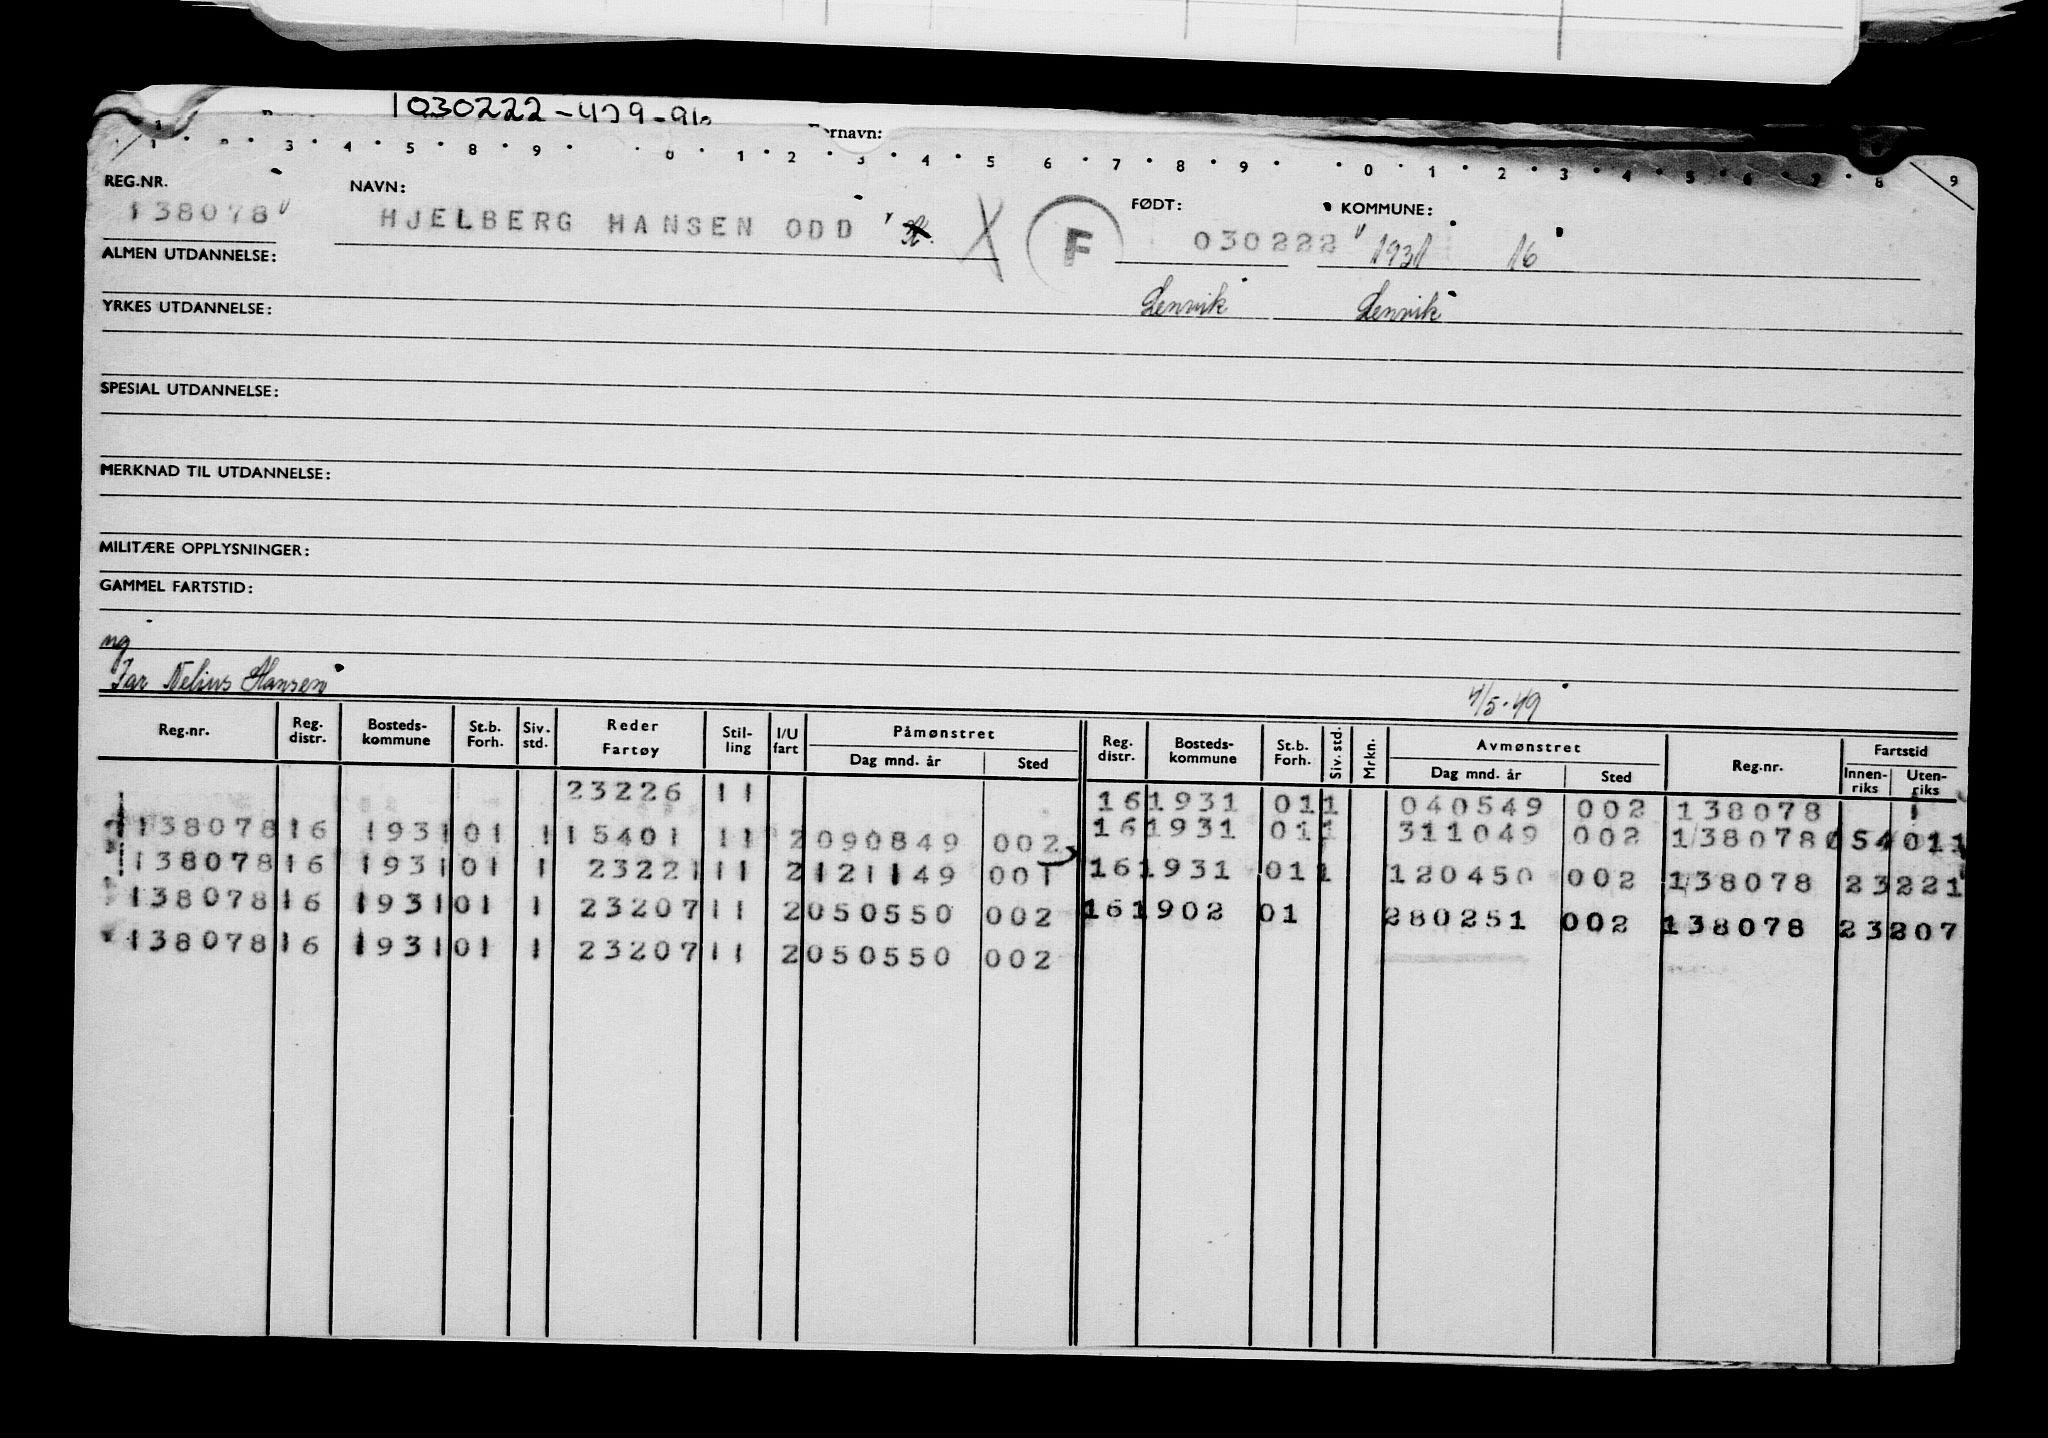 1030222-479-96
Fornavn:
1 2 3 4 5 8 9 0 1 2 3 4 5 6 7 8 9 0 1 2 3 4 5 6 7 8 9
REG.NR. NAVN: FØDT: KOMMUNE:
138078 HJELBERG HANSEN ODD F 030222 1931 16
ALMEN UTDANNELSE:
Lenvik Lenvik
YRKES UTDANNELSE:
SPESIAL UTDANNELSE:
MERKNAD TIL UTDANNELSE:
MILITÆRE OPPLYSNINGER:
GAMMEL FARTSTID:
ng
Far Nelius Hansen
4/5-49
Reg.nr. Reg. distr. Bosteds-kommune St.b. Forh. Siv. std. Reder Fartøy Stil-ling I/U fart Påmønstret Dag mnd. år Sted Reg. distr. Bosteds-kommune St.b. Forh. Siv. std. Mrkn. Avmønstret Dag mnd. år Sted Reg.nr. Fartstid Innen-riks Uten-riks
23226 11 16 1931 01 1 040549 002 138078
138078 16 1931 01 1 15401 11 2 090849 002 16 1931 01 1 311049 002 138078 54 011
138078 16 1931 01 1 23221 11 2 121149 001 16 1931 01 1 120450 002 138078 23 221
138078 16 1931 01 1 23207 11 2 050550 002 16 1902 01 280251 002 138078 23 207
138078 16 1931 01 1 23207 11 2 050550 002